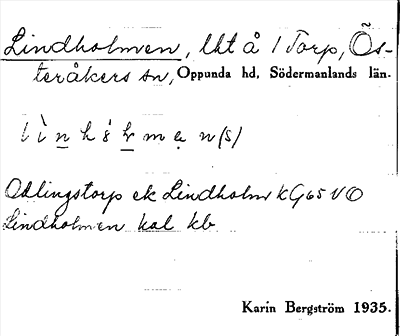 Lindholmen, lht å 1 Torp, Ös-
teråkers sn, Oppunda hd, Södermanlands län.
Odlingstorp ek Lindholm KG65 VO
Lindholmen kal kb
Karin Bergström 1935.